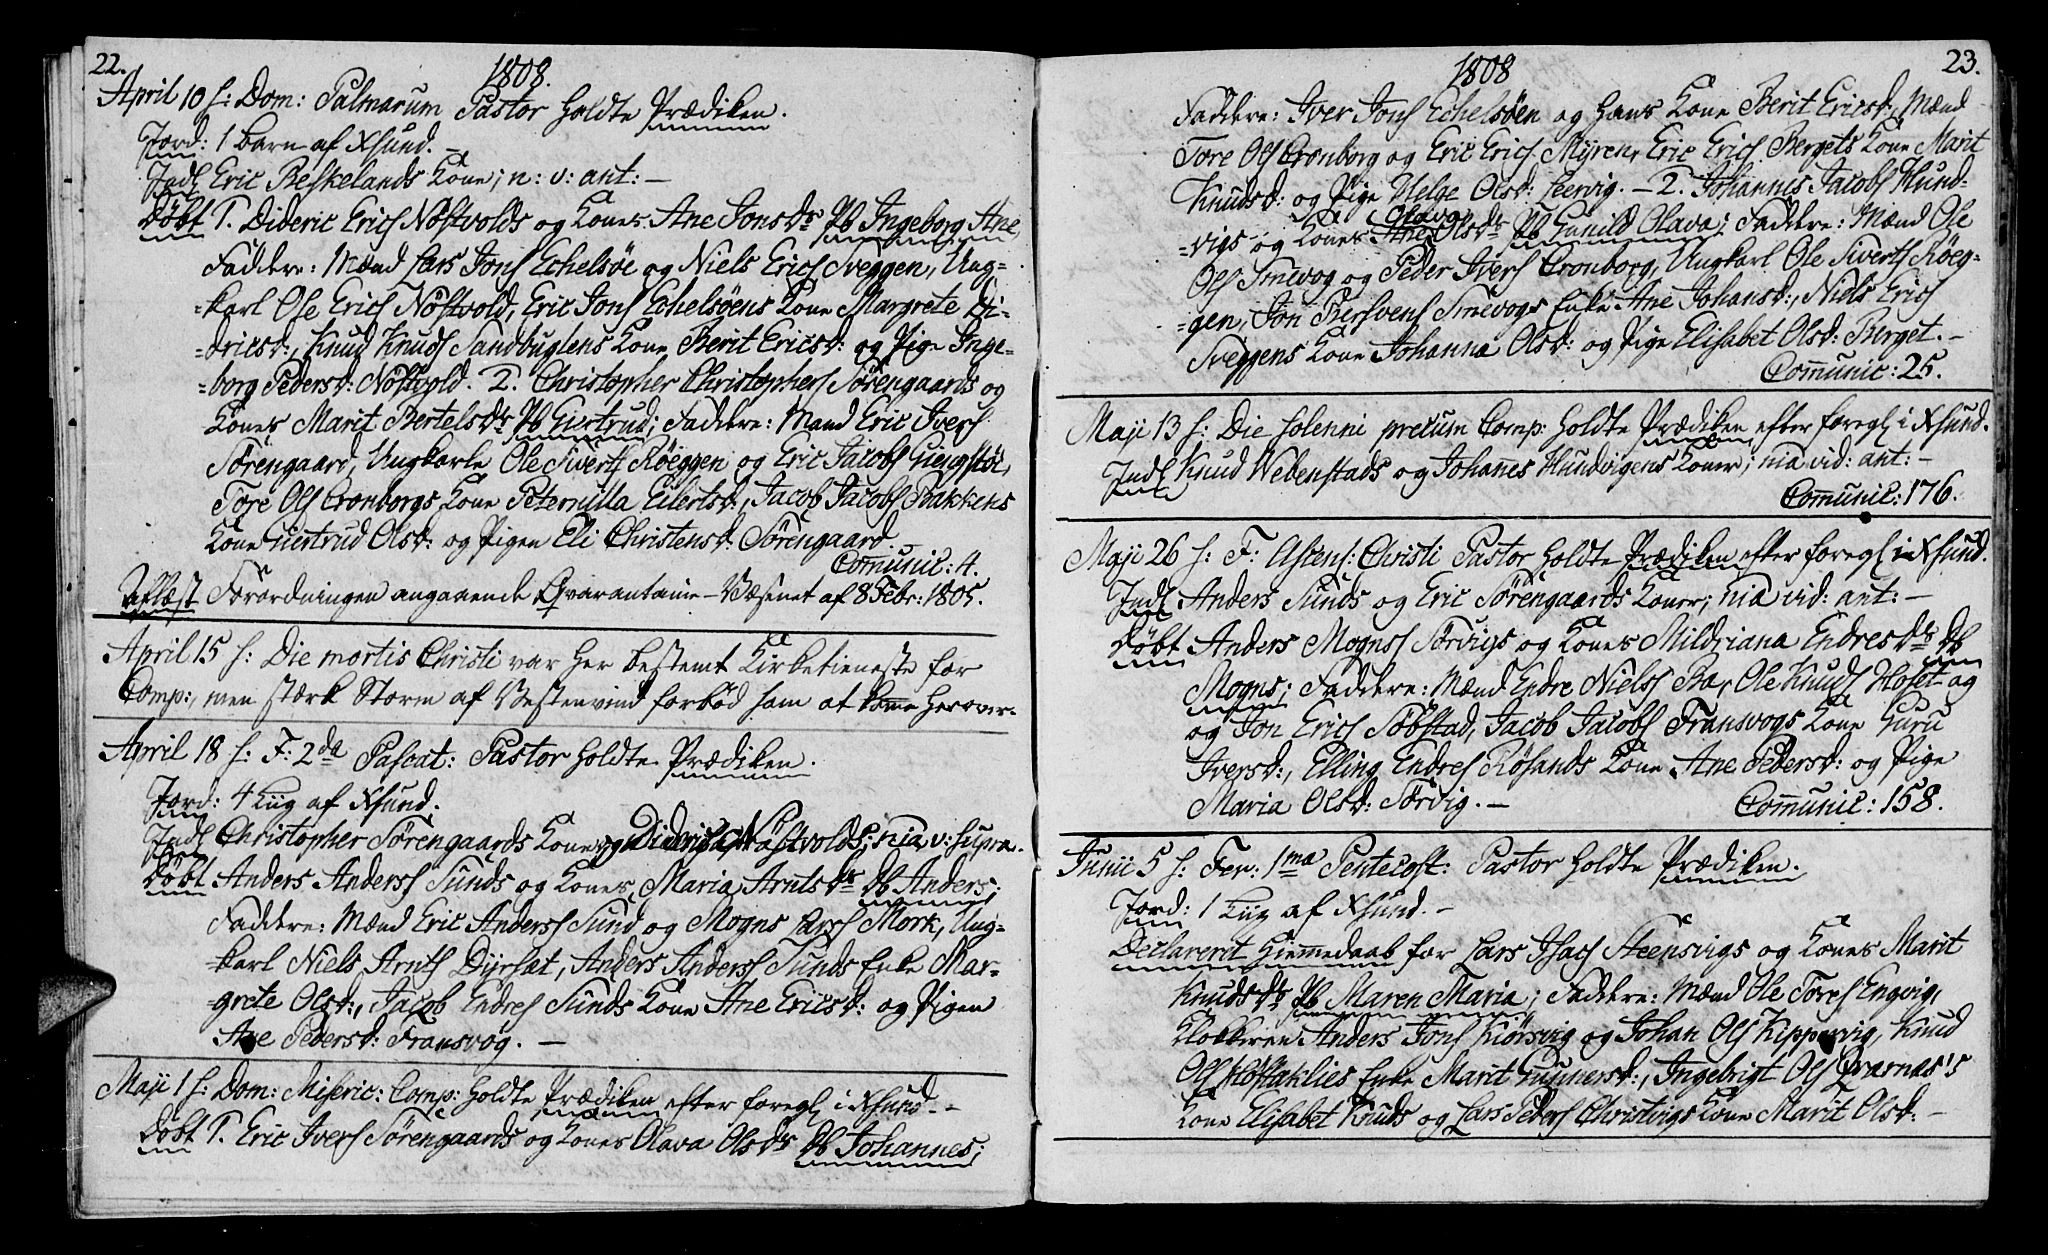 22.
1808.
April 10 h: Dom: Palmarum Pastor holdte Prædiken.
Jord: 1 barn af Xsund. –
Indl Eric Beskelands Kone; n: v: ant: –
Døbt 1. Dideric Erics Nøstvolds og Kones Ane Jonsdr Pb Ingeborg Ane,
Faddere: Mænd Lars Jons Echelsøe og Niels Erics Sveggen, Ung-
-karl Ole Erics Nøstvold, Eric Jons Echelsøens Kone Margrete Di-
-dricsd:, Knud Knuds Sandbugtens Kone Berit Ericsd: og Pige Inge-
-borg Pedersd: Nøstvold. 2. Christopher Christophers Sørengaards og
Kones Marit Bertelsdr Pb Giertrud; Faddere: Mand Eric Ivers
Sørengaard, Ungkarle Ole Siverts Røeggen og Eric Jacobs Giengstøe,
Tore Ols Cronborgs Kone Peternilla Eilertsd:, Jacob Jacobs Bakkens
Kone Giertrud Olsd: og Pigen Eli Christensd: Sørengaard
Communic: 4.
Aflæst Forordningen angaaende Qvarantaine-Væsenet af 8 Febr: 1805.
April 15 h: Die mortis Christi var her bestemt Kirketieneste for
Comp:, men stærk Storm af Vestenvind forbød ham at komme herover.
April 18 h: F: 2da Pascat: Pastor holdte Prædiken.
Jord: 4 Liig af Xsund.
Indl Christopher Sørengaards Kone og Didrich Nøstvolds; nia v: supra.
Døbt Anders Anders Sunds og Kones Maria Arntsdr Db Anders;
Faddere: Mænd Eric Anders Sund og Mogns Lars Mork, Ung-
-karl Niels Arnts Dyrsæt, Anders Anders Sunds Enke Mar-
-grete Olsd:, Jacob Endres Sunds Kone Ane Ericsd: og Pigen
Ane Pedersd: Fransvog. –
Maji 1 h: Dom: Miseric: Comp: holdte Prædiken efter foregl i Xsund. -
Døbt 1. Eric Ivers Sørengaards og Kones Olava Olsdr Db Johannes;
23.
1808
Faddere: Iver Jons Echelsøen og hans Kone Berit Ericsd:, Mænd
Tore Ols Cronborg og Eric Erics Myren, Eric Erics Bergets Kone Marit
Knudsd: og Pige Helge Olsd: Leervig. – 2. Johannes Jacobs Hund-
-vigs og Kones Ane Olava Olsdr Pb Gunild Olava; Faddere: Mænd Ole
Ols Smevog og Peder Ivers Cronborg, Ungkarl Ole Siverts Røeg-
-gen, Jon Bersvens Smevogs Enke Ane Johansd:, Niels Erics
Sveggens Kone Johanna Olsd: og Pige Elisabet Olsd: Berget. –
Communic: 25.
Maji 13 h: Die solenni precum Comp: holdte Prædiken efter foregl i Xsund.
Indl Knud Nebenstads og Johannes Hundvigens Koner; nia vid: ant: –
Communic: 176.
Maji 26 h: F: Ascens: Christi Pastor holdte Prædiken efter foregl i Xsund.
Indl Anders Sunds og Eric Sørengaards Koner; nia vid: ant: –
Døbt Anders Mogns Sørvigs og Kones Mildriana Endresdr Db
Mogns; Faddere: Mænd Endre Niels Bæ, Ole Knuds Hoset og
og Jon Erics Sobstad, Jacob Jacobs Fransvogs Kone Guru
Iversd:, Elling Endres Røsands Kone Ane Pedersd: og Pige
Maria Olsd: Sørvig. –
Communic: 158.
Junii 5 h: Fer: 1ma Pentecost: Pastor holdte Prædiken.
Jord: 1 Liig af Xsund. –
Declareret Hiemmedaab for Lars Isacs Steensvigs og Kones Marit
Knudsdr Pb Maren Maria; Faddere: Mænd Ole Tores Engvig,
Klokkeren Anders Jons Kiørsvig og Johan Ols Kippervig, Knud
Ols Enke Marit Gunnersd:, Ingebrigt Ols Qvarnæs's
Kone Elisabet Knuds og Lars Peders Christvigs Kone Marit Olsd: –